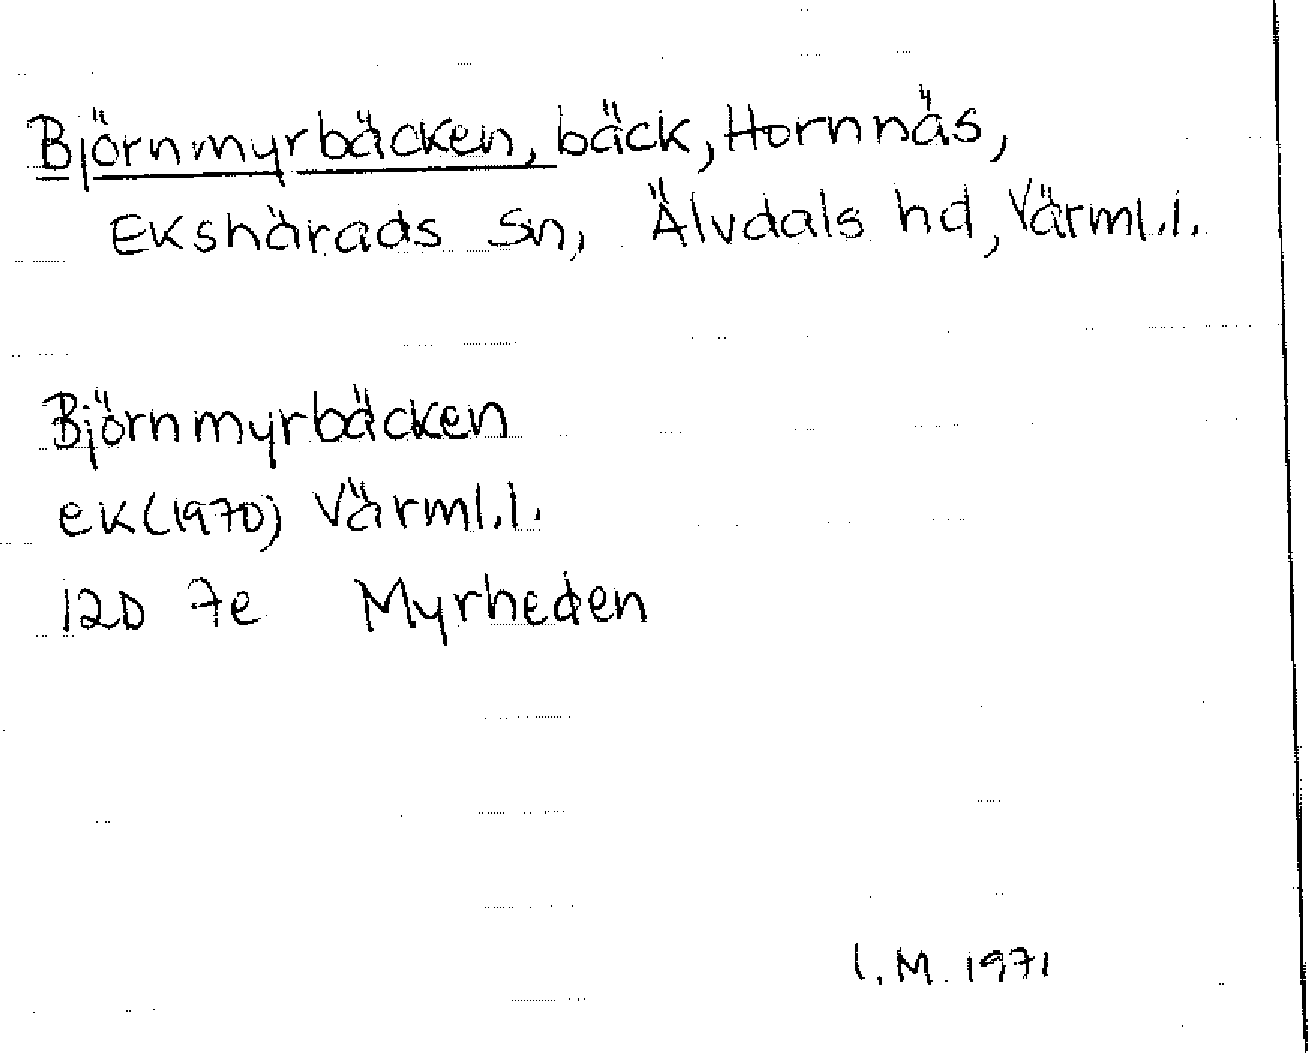 Björnmyrbäcken, bäck, Hornnäs,
Ekshärads sn, Älvdals hd, Värml.l.
Björnmyrbäcken
ek (1970) Värml.l.
12D 7e Myrheden
I.M. 1971